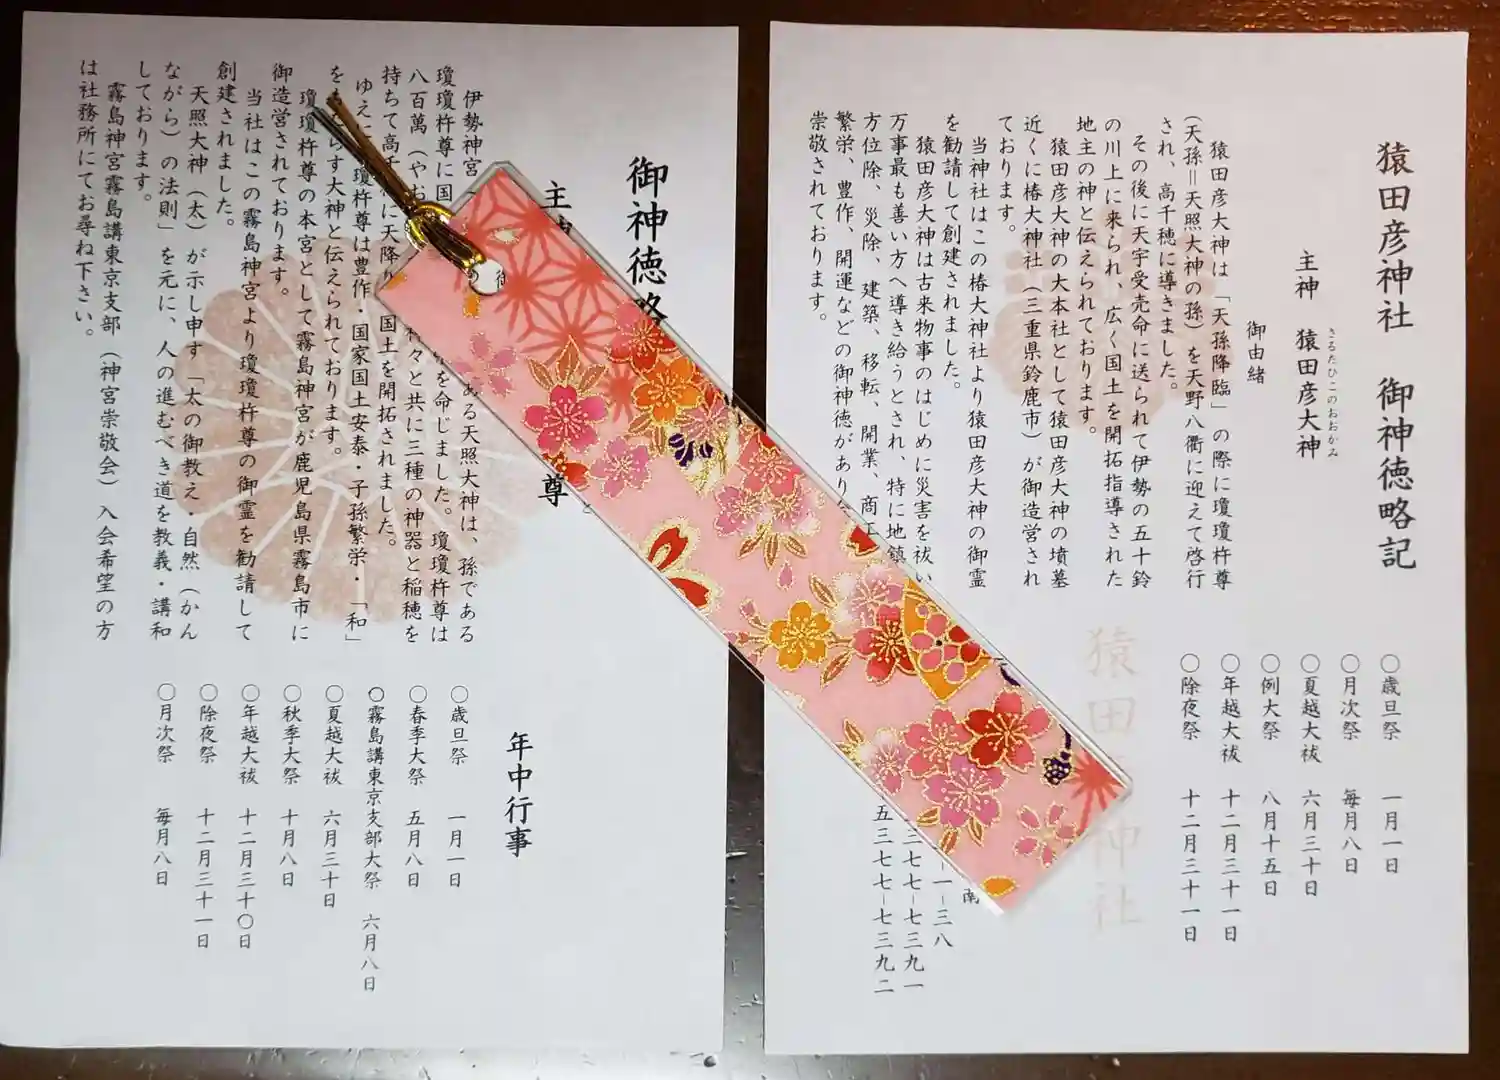 猿田彦神社 御神徳略記
主神 猿田彦大神
さるたひこのおおかみ
御由緒
猿田彦大神は「天孫降臨」の際に瓊瓊杵尊
(天孫=天照大神の孫)を天野八衢に迎えて啓行
され、高千穂に導きました。
その後に天宇受売命に送られて伊勢の五十鈴
の川上に来られ、広く国土を開拓指導された
地主の神と伝えられております。
猿田彦大神の大本社として猿田彦大神の墳墓
近くに椿大神社(三重県鈴鹿市)が御造営され
ております。
当神社はこの椿大神社より猿田彦大神の御霊
を勧請して創建されました。
猿田彦大神は古来物事のはじめに災害を祓い
万事最も善い方へ導き給うとされ、特に地鎮
方位除、災除、建築、移転、開業、商工
繁栄、豊作、開運などの御神徳があり
崇敬されております。
〇歳旦祭 一月一日
〇月次祭 毎月八日
〇夏越大祓 六月三十日
〇例大祭 八月十五日
〇年越大祓 十二月三十一日
〇除夜祭 十二月三十一日
猿田 神社
南
一-三八
三七七-七三九一
五三七七-七三九二
御神徳略
主神 尊
伊勢神宮( ある天照大神は、孫である
瓊瓊杵尊に国 を命じました。瓊瓊杵尊は
八百萬(やお 神々と共に三種の神器と稲穂を
持ちて高千 に天降り 国土を開拓されました。
ゆえに 瓊杵尊は豊作・国家国土安泰・子孫繁栄・「和」
をもたらす大神と伝えられております。
瓊瓊杵尊の本宮として霧島神宮が鹿児島県霧島市に
御造営されております。
当社はこの霧島神宮より瓊瓊杵尊の御霊を勧請して
創建されました。
天照大神(太)が示し申す「太の御教え・自然(かん
ながら)の法則」を元に、人の進むべき道を教義・講和
しております。
霧島神宮霧島講東京支部(神宮崇敬会)入会希望の方
は社務所にてお尋ね下さい。
年中行事
〇歳旦祭 一月一日
〇春季大祭 五月八日
〇霧島講東京支部大祭 六月八日
〇夏越大祓 六月三十日
〇秋季大祭 十月八日
〇年越大祓 十二月三十〇日
〇除夜祭 十二月三十一日
〇月次祭 毎月八日